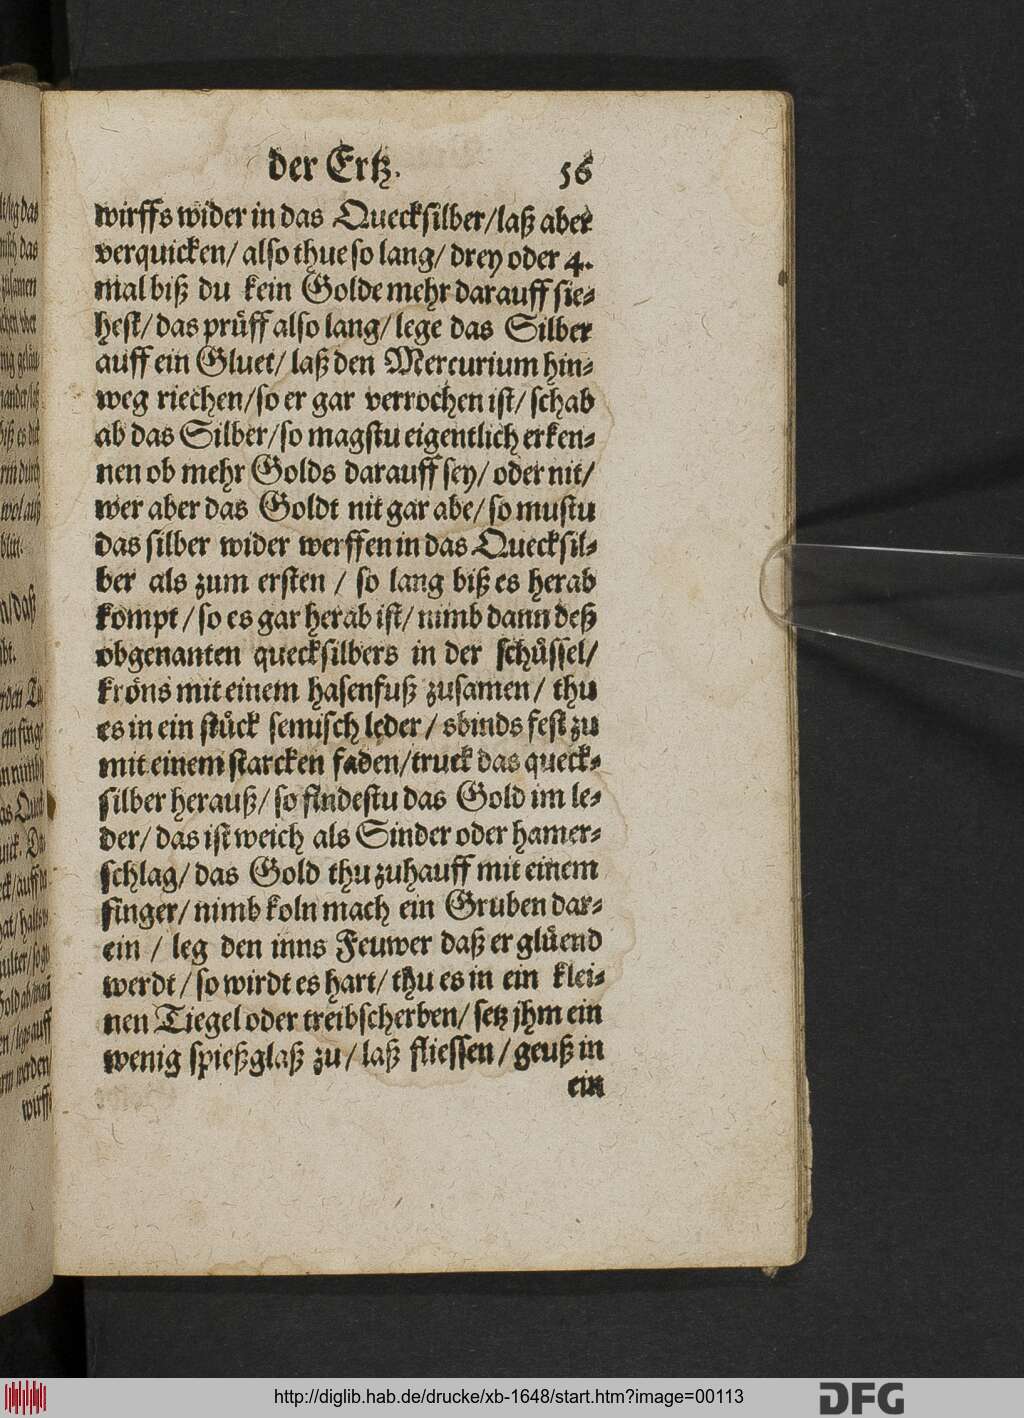 der Ertz. 56
wirffs wider in das Quecksilber/laß aber
verquicken/ also thue so lang/ drey oder 4.
mal biß du kein Golde mehr darauff sie-
hest/ das prüff also lang/ lege das Silber
auff ein Gluet/ laß den Mercurium hin-
weg riechen/so er gar verrochen ist/ schab
ab das Silber/so magstu eigentlich erken-
nen ob mehr Golds darauff sey/ oder nit/
wer aber das Goldt nit gar abe/ so mustu
das silber wider werffen in das Quecksil-
ber als zum ersten / so lang biß es herab
kompt/ so es gar herab ist/ nimb dann deß
obgenanten quecksilbers in der schüssel/
kröns mit einem hasenfuß zusamen/ thu
es in ein stück semisch leder/ sbinds fest zu
mit einem starcken faden/truck das queck-
silber herauß/ so findestu das Gold im le-
der/ das ist weich als Sinder oder hamer-
schlag/ das Gold thu zuhauff mit einem
finger/ nimb koln mach ein Gruben dar-
ein / leg den inns Feuwer daß er glüend
werdt/ so wirdt es hart/ thu es in ein klei-
nen Tiegel oder treibscherben/ setz jhm ein
wenig spießglaß zu/ laß fliessen/ geuß in
ein
wirffs
http://diglib.hab.de/drucke/xb-1648/start.htm?image=00113
DFG